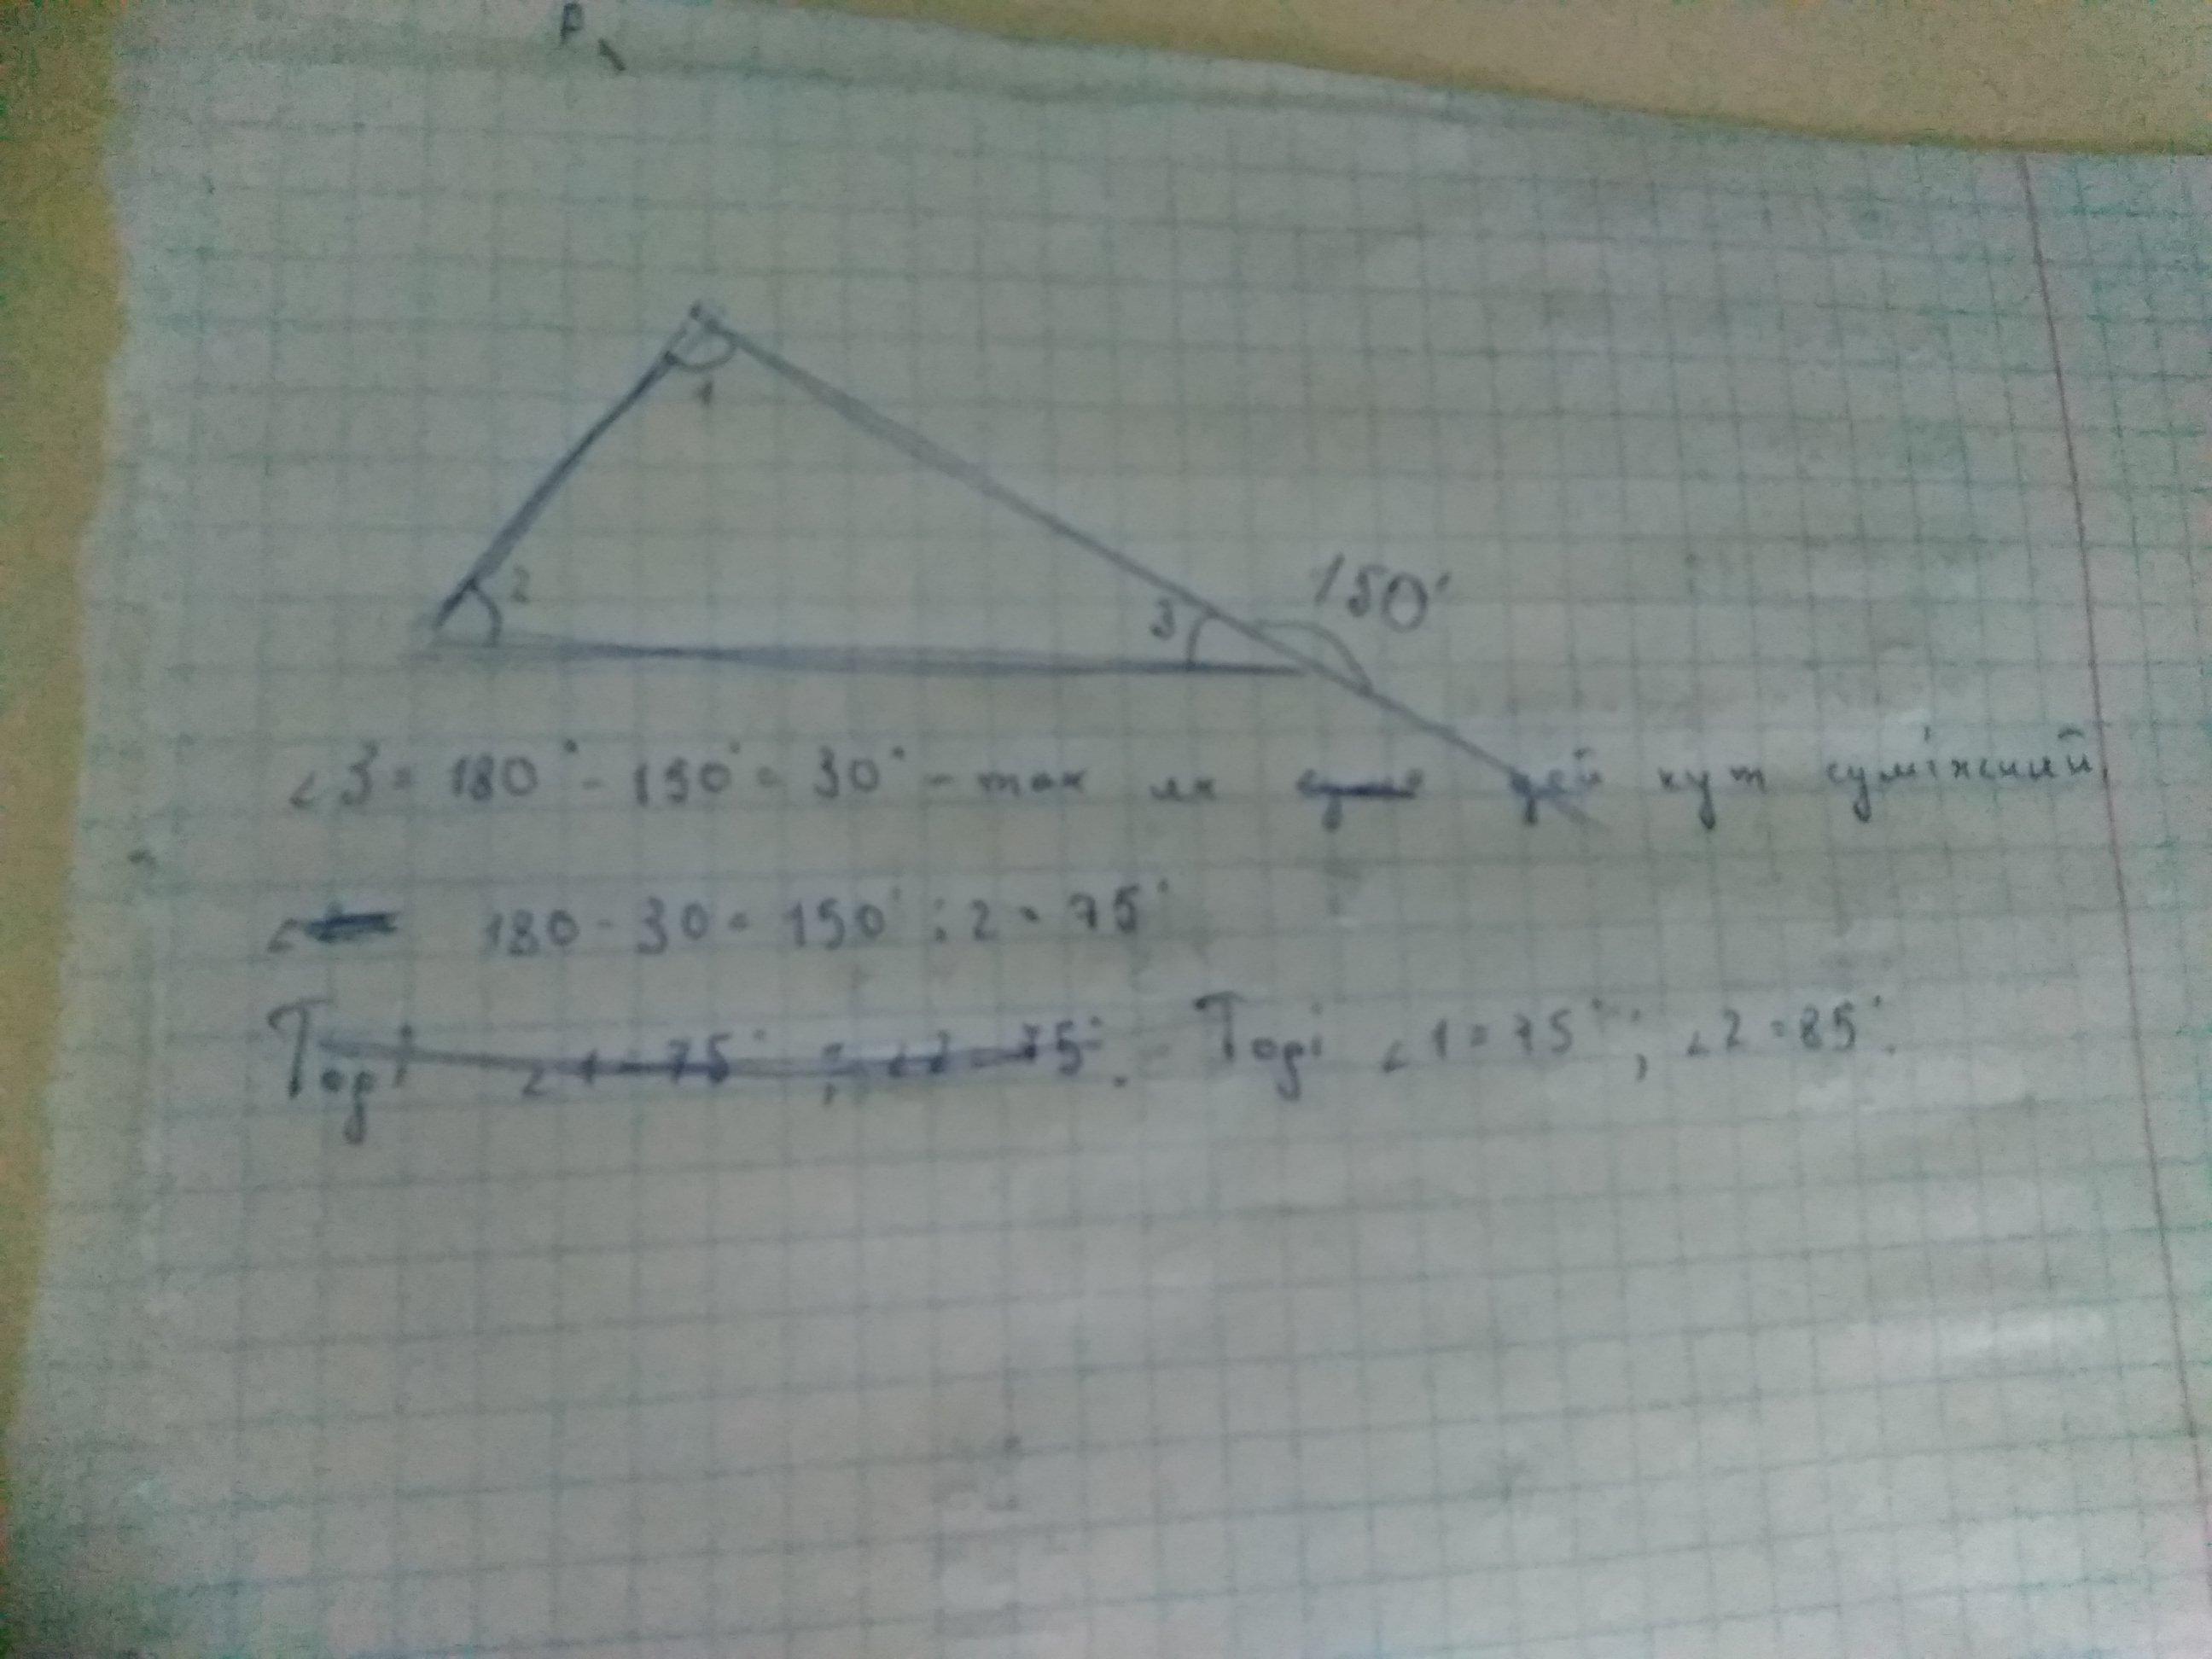 1
2
3
150°
∠3 = 180° - 150° = 30° - так як цей кут суміжний,
∠ 180 - 30 = 150° : 2 = 75°
Тоді ∠1 = 75°; ∠2 = 75°. Тоді ∠1 = 75°; ∠2 = 85°.